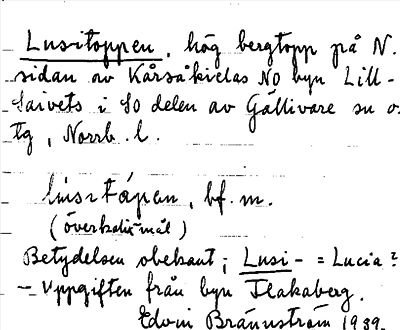 Lusitoppen, hög bergtopp på N.
sidan av Kårsåkielas NO byn Lill-
Saivets i SO delen av Gällivare sn o.
tg, Norrb. l.
lùsɩtápen, bf. m.
(överkalixmål)
Betydelsen obekant; Lusi- = Lucia?
- Uppgiften från byn Flakaberg.
Edvin Brännström 1939.